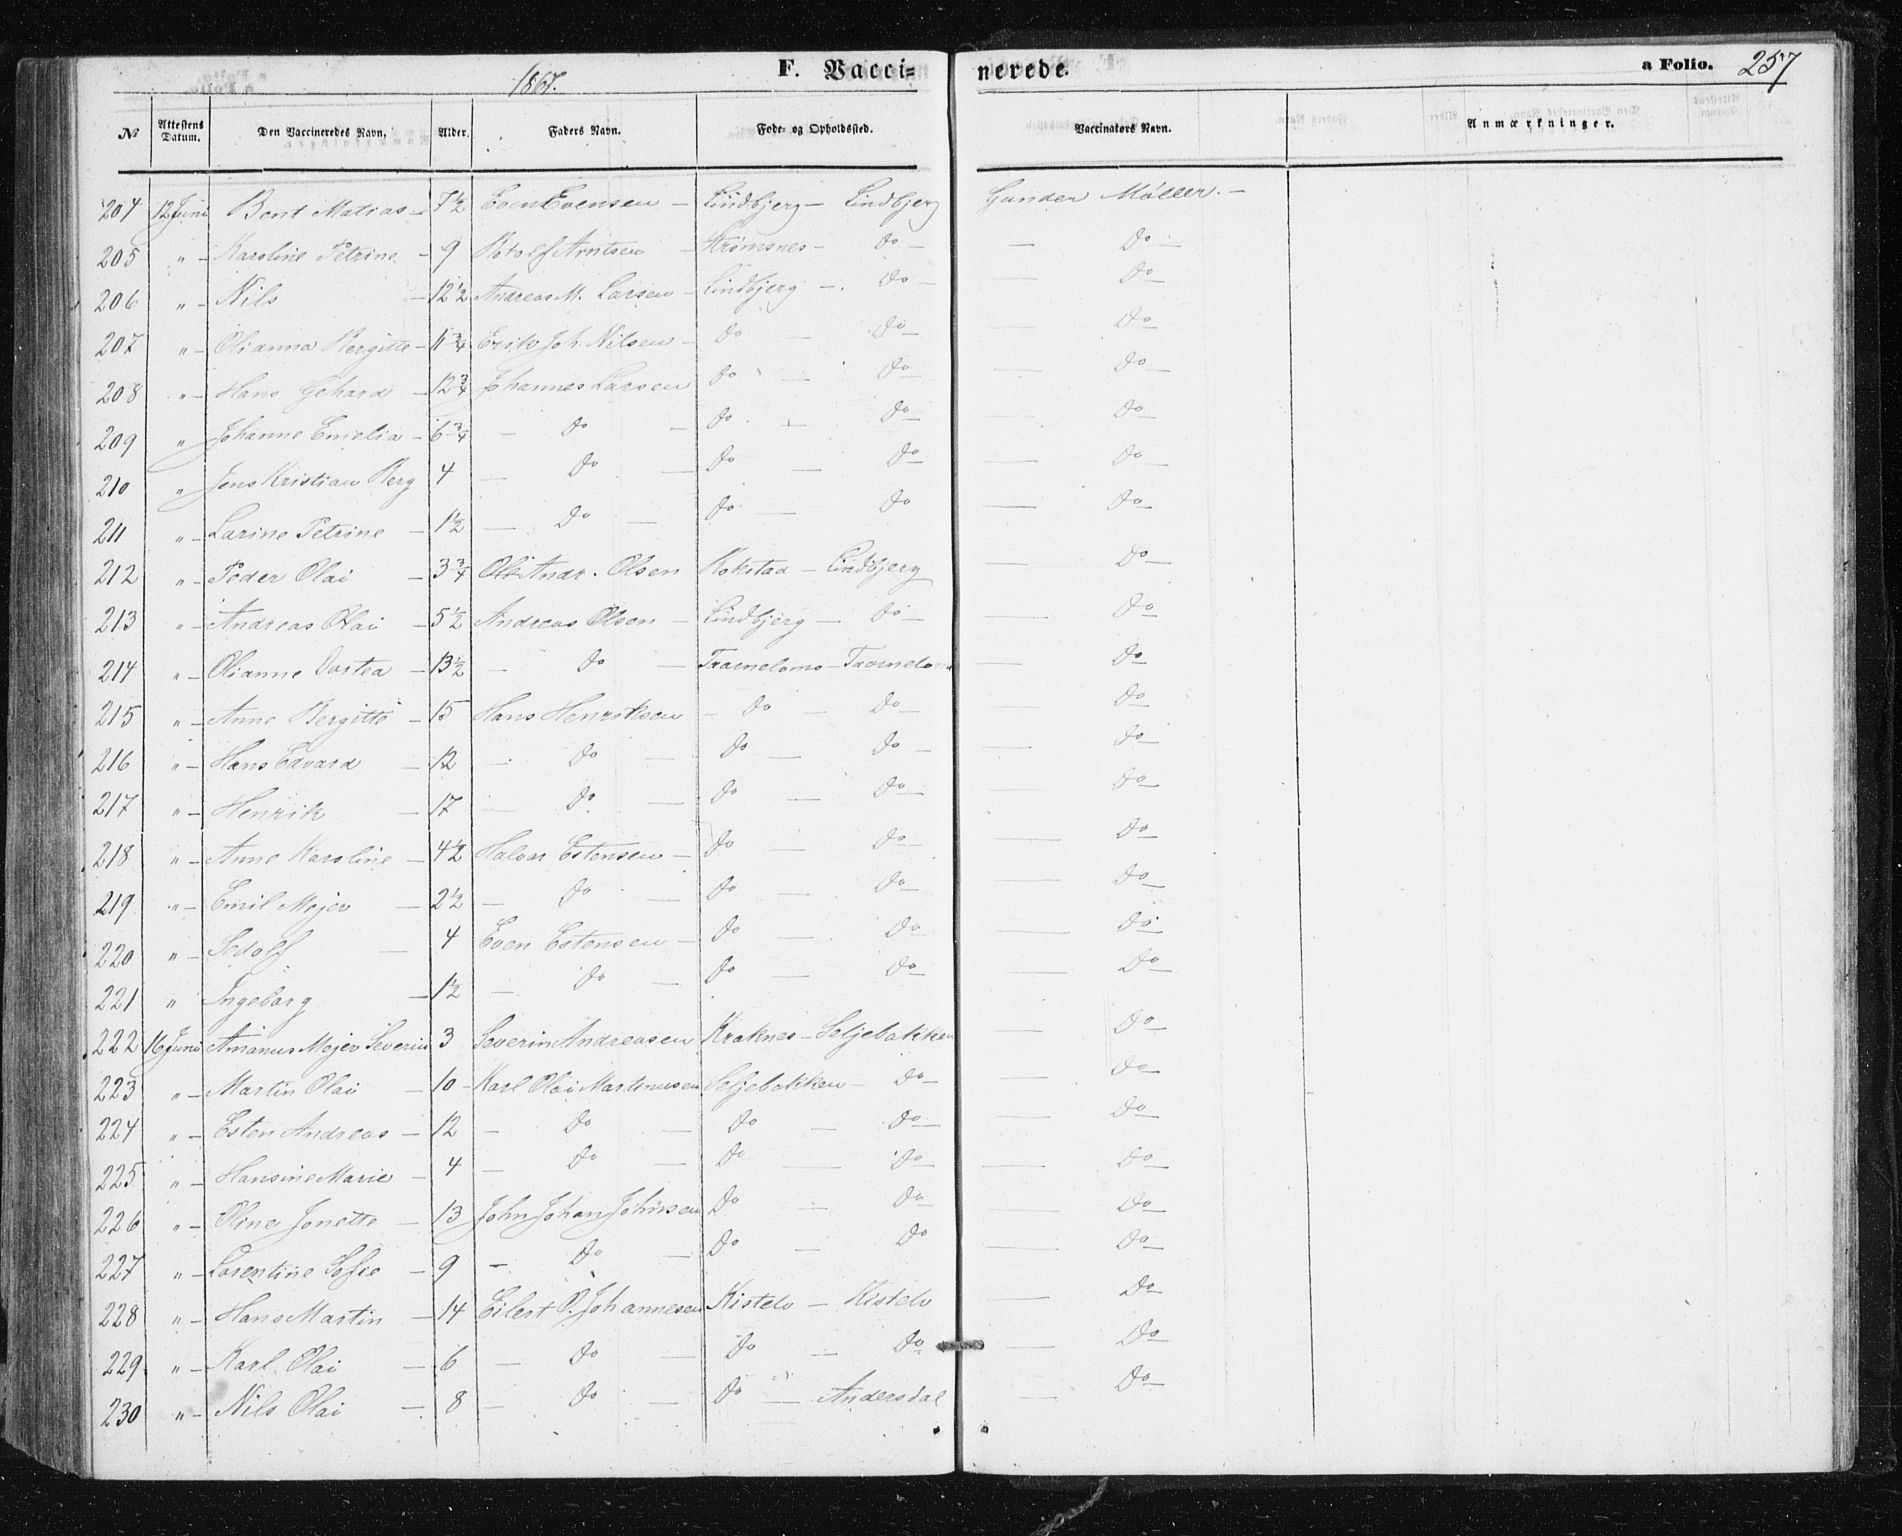 1867. F. Vacci- nerede. a Folio. 257
№ Attestens Datum. Den Vaccineredes Navn. Alder. Faders Navn. Føde- og Opholdssted. Vaccinators Navn. Anmærkninger.
204 12 Juni Bent Matias - 7½ Even Evensen - Lindbjerg - Lindbjerg Gunder Møller. -
205 " - Karoline Petrine - 9 Rolf Arntsen - Strømsnes - Do - - Do -
206 " - Nils - 12½ Andreas M. Larsen - Lindbjerg - Do - - Do
207 " - Olianna Bergitte - 11¾ Erik Joh. Nilsen - Do - Do - - Do
208 " - Hans Gehard - 12¾ Johannes Larsen Do - Do - - Do
209 " Johanne Emelia - 6¾ - Do - Do - Do - Do
210 " Jens Kristian Berg 4 - Do - Do - Do - Do -
211 " - Larine Petrine - 1½ - Do - Do - Do - Do
212 " - Peder Olai - 3¾ Ole Andr. Olsen Rokstad - Lindbjerg - Do -
213 " - Andreas Olai - 5½ Andreas Olsen - Lindbjerg - Do - - Do
214 " - Olianne Dortea - 13½ - Do - Tarmelomo - Do
215 " - Anne Bergitte - 15 Hans Henriksen - Do - Do - - Do
216 " - Hans Edvard - 12 - Do - Do - Do - - Do
217 " - Henrik - 17 - Do - Do - Do - - Do
218 " - Anne Karoline - 4½ Halvor Estensen - Do - Do - - Do
219 " - Emil Mejer - 2½ - Do - Do - Do - Do
220 " - - 4 Even Estensen - Do - Do - Do
221 " Ingeborg - 1½ - Do - Do - Do - Do
222 16 Juni Amanus Mejer Severin 3 Severin Andreasen Kraknes - Seljebakken - Do
223 " - Martin Olai - 10 - Karl Olai Martinusen Seljebakken - Do - Do
224 " - Esten Andreas - 12 - Do - Do - Do - Do
225 " - Hansine Marie - 4 - Do - Do - Do - Do
226 " - Oline Jonette - 13 John Johan Johnsen Do - Do - Do
227 " - Lorentine Sofie - 9 - Do - Do - Do - Do
228 " - Hans Martin - 14 Eilert O. Johannesen Kistelv - Kistelv - Do
229 " - Karl Olai - 6 - Do - Do - Do - Do
230 " - Nils Olai - 8 - Do - Do - Andersdal - Do